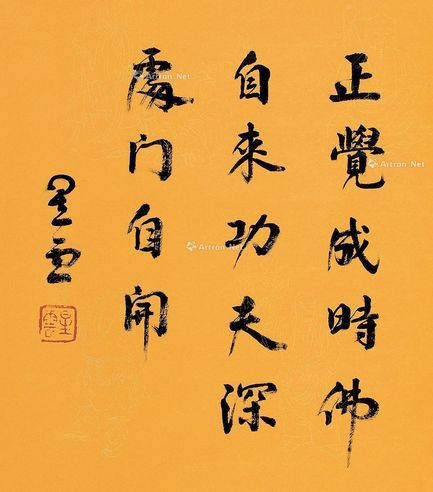 正覺成時佛
自來功夫深
處门自開
星雲
星雲
Artron.Net
Artron.Net
Artron.Net